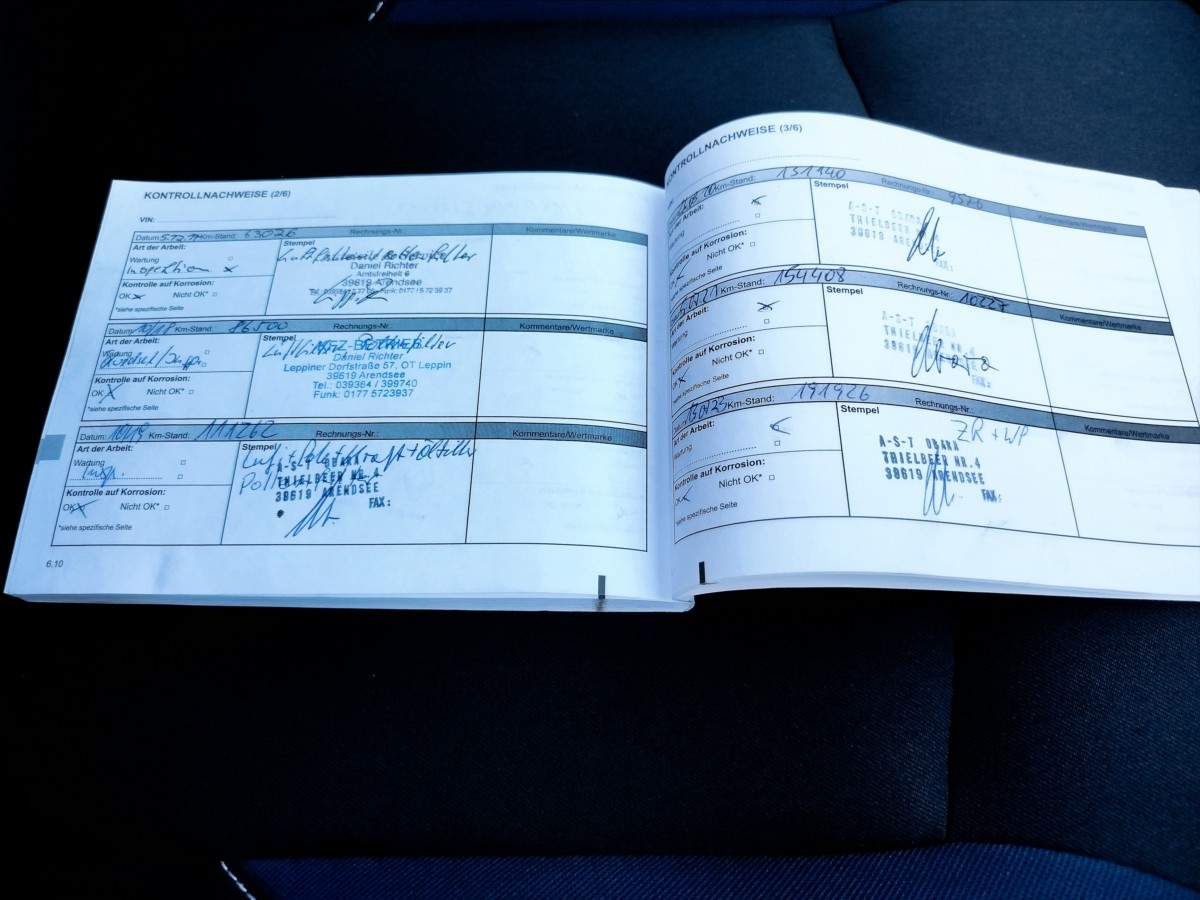 KONTROLLNACHWEISE (2/6)
VIN:
Datum: 5.12.17 Km-Stand: 63026 Rechnungs-Nr.: Kommentare/Wertmarke
Art der Arbeit: Stempel
Wartung
Inspektion x
Daniel Richter
Amtsfreiheit 6
39619 Arendsee
Kontrolle auf Korrosion:
OK x Nicht OK*
*siehe spezifische Seite
Datum: 10/18 Km-Stand: 86500 Rechnungs-Nr.: Kommentare/Wertmarke
Art der Arbeit: Stempel
Wartung
Daniel Richter
Leppiner Dorfstraße 57, OT Leppin
39619 Arendsee
Tel.: 039384 / 399740
Funk: 0177 5723937
Kontrolle auf Korrosion:
OK x Nicht OK*
*siehe spezifische Seite
Datum: 10/19 Km-Stand: 111262 Rechnungs-Nr.: Kommentare/Wertmarke
Art der Arbeit: Stempel
Wartung
Insp.
A-S-T OBARA
THIELBEER NR.4
39619 ARENDSEE
FAX:
Kontrolle auf Korrosion:
OK x Nicht OK*
*siehe spezifische Seite
6.10
KONTROLLNACHWEISE (3/6)
Km-Stand: 131140 Rechnungs-Nr.: Kommentare/Wertmarke
Art der Arbeit: Stempel
Wartung
A-S-T OBARA
THIELBEER
39619 ARENDSEE
FAX:
Kontrolle auf Korrosion:
Nicht OK*
*siehe spezifische Seite
Km-Stand: 154408 Rechnungs-Nr.: 10227 Kommentare/Wertmarke
Art der Arbeit: Stempel
Wartung
A-S-T OBARA
THIELBEER NR.4
39619
FAX:
Kontrolle auf Korrosion:
OK x Nicht OK*
*siehe spezifische Seite
Datum: Km-Stand: 191926 Rechnungs-Nr.: Kommentare/Wertmarke
Art der Arbeit: Stempel
Wartung
ZR + WP
A-S-T OBARA
THIELBEER NR.4
39619 ARENDSEE
FAX:
Kontrolle auf Korrosion:
OK Nicht OK*
*siehe spezifische Seite